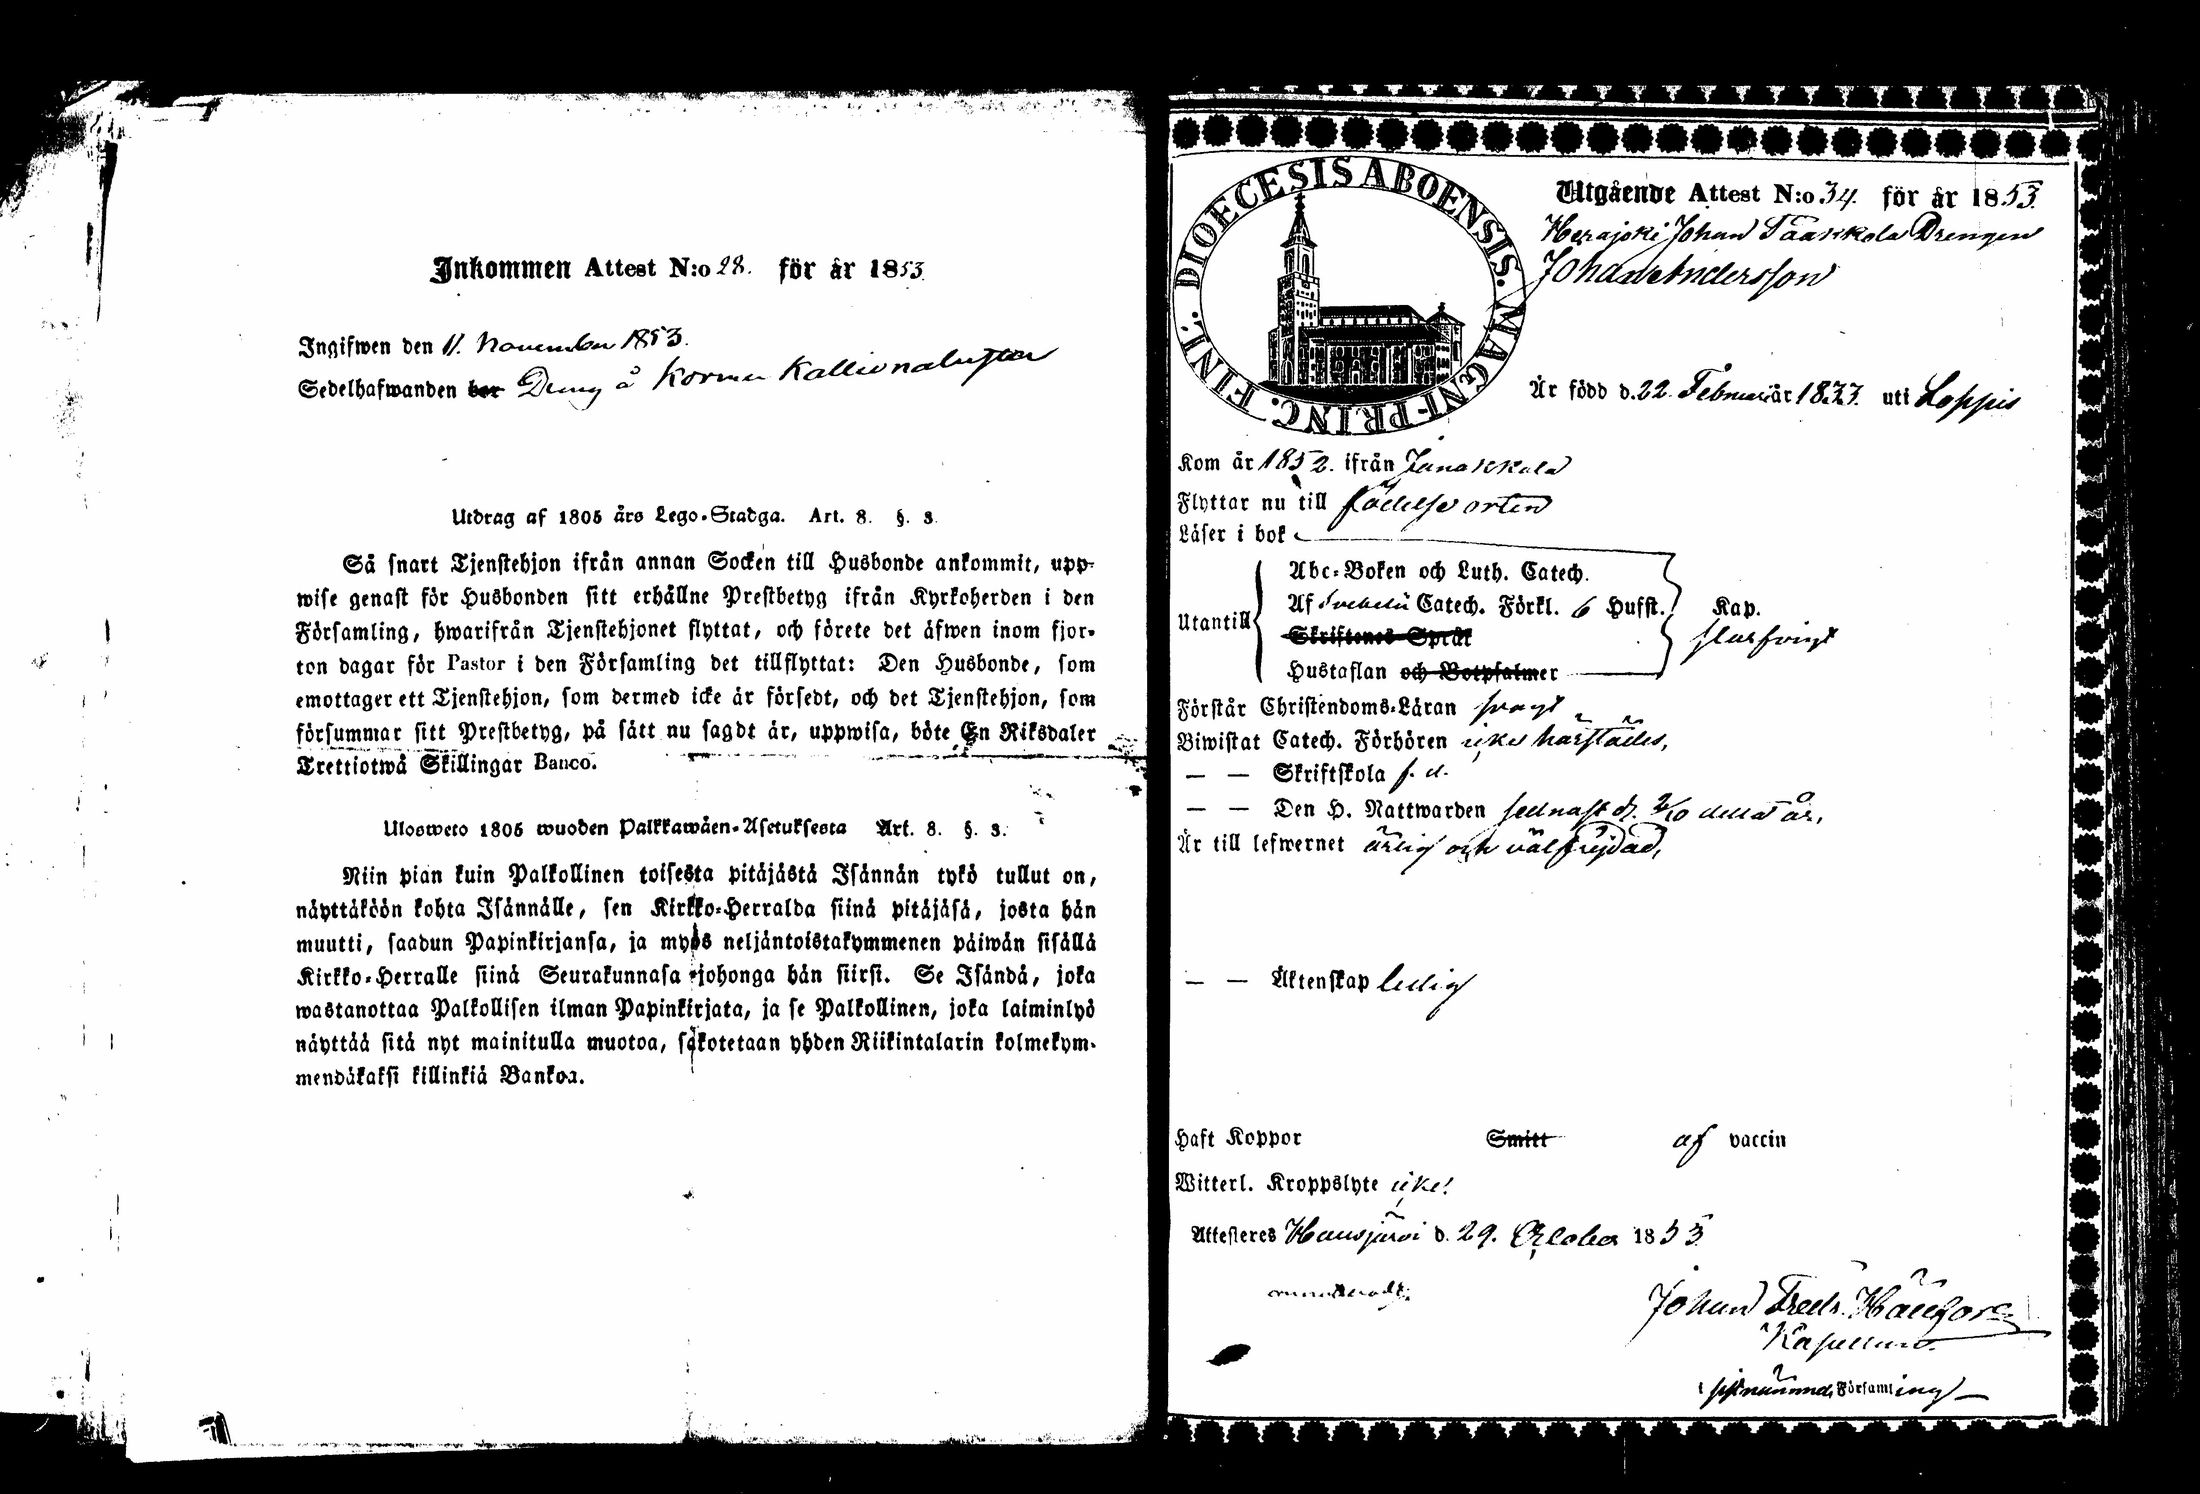 Inkommen Attest N:o 28. för år 1853.
Ingifwen den 11. November 1853.
Sedelhafwanden bor Dreng å Kormu Kallionalusta
Utdrag af 1805 års Lego-Stadga. Art. 8. §. 3.
Så snart Tjenstehjon ifrån annan Socken till Husbonde ankommit, upp-
wise genast för Husbonden sitt erhållne Prestbetyg ifrån Kyrkoherden i den
Församling, hwarifrån Tjenstehjonet flyttat, och förete det äfwen inom fjor-
ton dagar för Pastor i den Församling det tillflyttat: Den Husbonde, som
emottager ett Tjenstehjon, som dermed icke är försedt, och det Tjenstehjon, som
försummar sitt Prestbetyg, på sätt nu sagdt är, uppwisa, böte En Riksdaler
Trettiotwå Skillingar Banco.
Ulosweto 1805 wuoden Palkkawäen-Asetuksesta Art. 8. §. 3.
Niin pian kuin Palkollinen toisesta pitäjästä Isännän tykö tullut on,
näyttäköön kohta Isännälle, sen Kirkko-Herralda siinä pitäjäsä, josta hän
muutti, saadun Papinkirjansa, ja myös neljäntoistakymmenen päiwän sisällä
Kirkko-Herralle siinä Seurakunnasa johonga hän siirsi. Se Isändä, joka
wastanottaa Palkollisen ilman Papinkirjata, ja se Palkollinen, joka laiminlyö
näyttää sitä nyt mainitulla muotoa, sakotetaan yhden Riikintalarin kolmekym-
mendäkaksi killinkiä Bankoa.
DIOECESIS ABOENSIS. MAGNI-PRINC. FINL.
Utgående Attest N:o 34. för år 1853.
Herajoki Johan Taakkola Drengen
Johan Andersson
Är född d. 22. Februari år 1833. uti Loppis
Kom år 1852. ifrån Janakkala
Flyttar nu till födelse orten
Läser i bok
Utantill
Abc-Boken och Luth. Catech.
Af Svebelii Catech. Förkl. 6 Hufst. Kap.
Skriftenes Språk
Hustaflan och Botpsalmer
Förstår Christendoms-Läran svagt
Biwistat Catech. Förhören icke härstädes,
— — Skriftskola f. d.
— — Den H. Nattwarden sednast d. 2/10 detta år,
Är till lefwernet ärlig och välfrejdad,
— — Äktenskap ledig
Haft Koppor Smitt af vaccin
Witterl. Kroppslyte icke!
Attesteres Hausjärvi d. 29. October 1853
Johan Fredr.
Kapellan
i sistnämnd. Församling